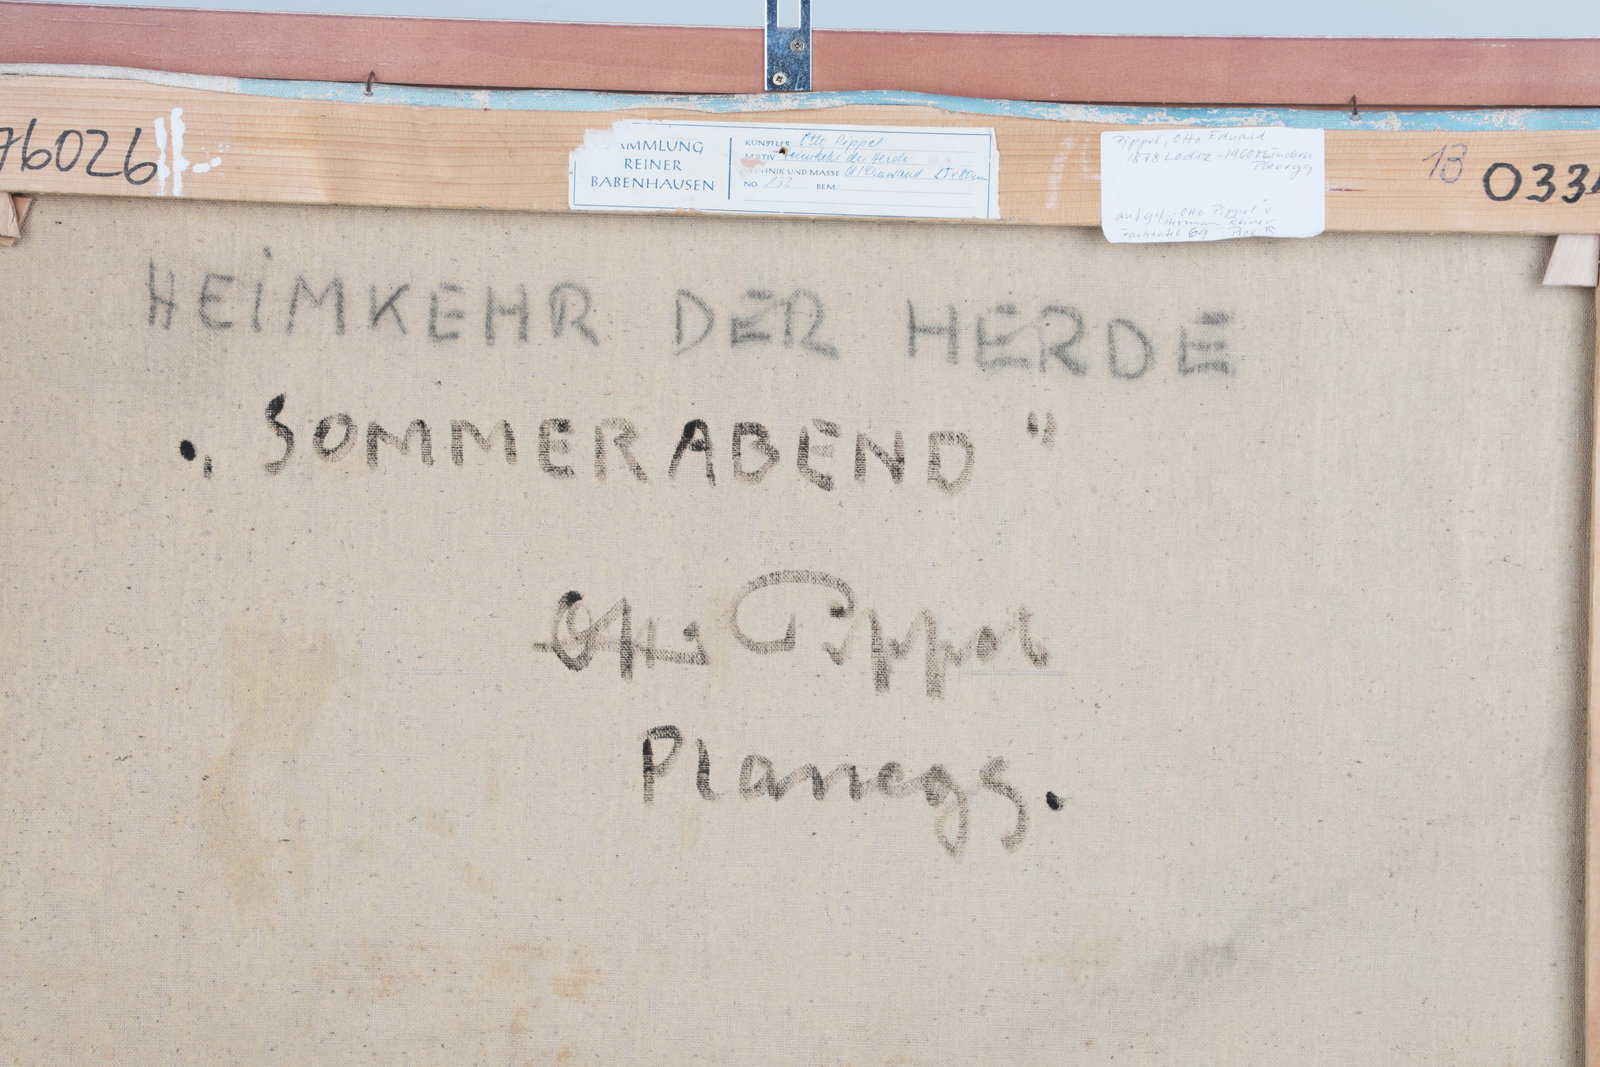 76026
AMMLUNG
REINER
BABENHAUSEN
KÜNSTLER Otto Pippel
MOTIV Heimkehr der Herde
HNIK UND MASSE Öl/Leinwand
NO. 153 BEM.
Pippel, Otto Eduard
1878 Lodz - 1960 München
Planegg
aufgef. Otto Pippel u.
Hermann Reiner
69
13
033
HEIMKEHR DER HERDE
„SOMMERABEND"
Otto Pippel
Planegg.